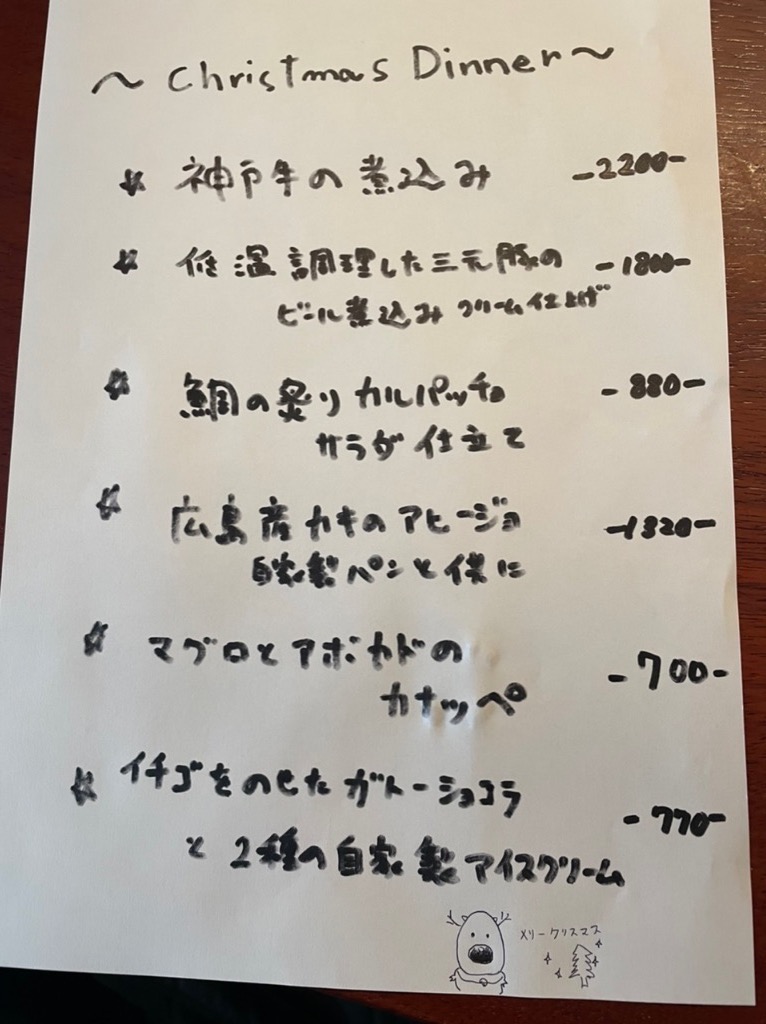 〜 Christmas Dinner 〜
☆ 神戸牛の煮込み -2200-
☆ 低温調理した三元豚の -1800-
ビール煮込み クリーム仕上げ
☆ 鯛の炙りカルパッチョ -880-
サラダ仕立て
☆ 広島産カキのアヒージョ -1320-
自家製パンと供に
☆ マグロとアボカドの -700-
カナッペ
☆ イチゴをのせたガトーショコラ -770-
と2種の自家製アイスクリーム
メリークリスマス